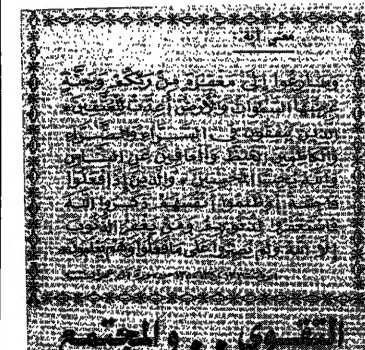 وسارعوا إلى مغفرة من ربكم وجنة
عرضها السموات والأرض أعدت للمتقين
الذين ينفقون في السراء والضراء
والكاظمين الغيظ والعافين عن الناس
والله يحب المحسنين . والذين إذا فعلوا
فاحشة أو ظلموا أنفسهم ذكروا الله
فاستغفروا لذنوبهم ومن يغفر الذنوب
إلا الله ولم يصروا على ما فعلوا وهم يعلمون
التقوى . . والمجتمع